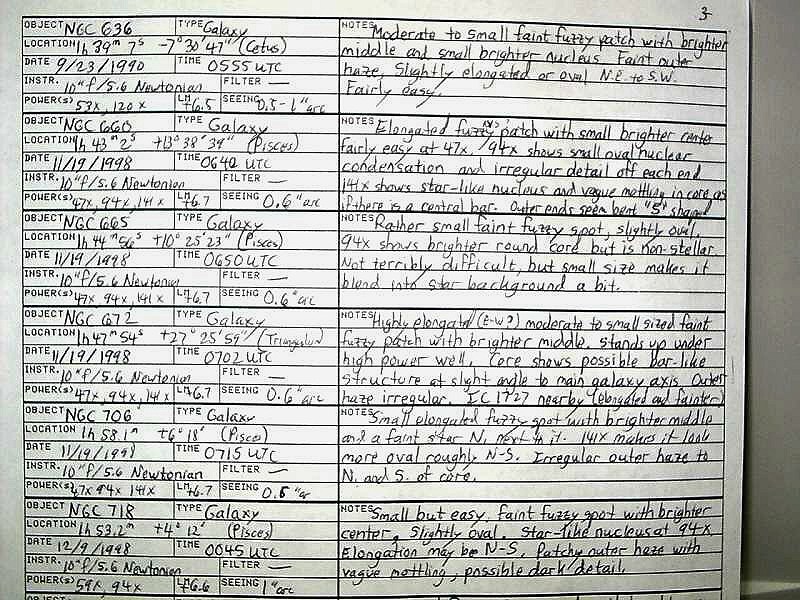 3
OBJECT NGC 636 TYPE Galaxy
LOCATION 1h 39m 7s -7° 30' 47" (Cetus)
DATE 9/23/1990 TIME 0555 UTC
INSTR. 10" f/5.6 Newtonian FILTER —
POWER(S) 53x, 120x LM +6.5 SEEING 0.5-1" arc
NOTES Moderate to small faint fuzzy patch with brighter
middle and small brighter nucleus. Faint outer
haze, Slightly elongated or oval N.E. to S.W.
Fairly easy.
OBJECT NGC 660 TYPE Galaxy
LOCATION 1h 43m 2s +13° 38' 39" (Pisces)
DATE 11/19/1998 TIME 0640 UTC
INSTR. 10" f/5.6 Newtonian FILTER —
POWER(S) 47x, 94x, 141x LM +6.7 SEEING 0.6" arc
NOTES Elongated fuzzy patch with small brighter center
fairly easy at 47x. 94x shows small oval nuclear
condensation and irregular detail off each end
141x shows star-like nucleus and vague mottling in core as
if there is a central bar. Outer ends seem bent "S" shaped
OBJECT NGC 665 TYPE Galaxy
LOCATION 1h 44m 56s +10° 25' 23" (Pisces)
DATE 11/19/1998 TIME 0650 UTC
INSTR. 10" f/5.6 Newtonian FILTER —
POWER(S) 47x 94x, 141x LM +6.7 SEEING 0.6" arc
NOTES Rather small faint fuzzy spot, slightly oval.
94x shows brighter round core but is non-stellar.
Not terribly difficult, but small size makes it
blend into star background a bit.
OBJECT NGC 672 TYPE Galaxy
LOCATION 1h 47m 54s +27° 25' 59" (Triangulum)
DATE 11/19/1998 TIME 0702 UTC
INSTR. 10" f/5.6 Newtonian FILTER —
POWER(S) 47x, 94x, 141x LM +6.7 SEEING 0.6" arc
NOTES Highly elongated (E-W?) moderate to small sized faint
fuzzy patch with brighter middle. stands up under
high power well. Core shows possible bar-like
structure at slight angle to main galaxy axis. Outer
haze irregular. IC 1727 nearby (elongated and fainter)
OBJECT NGC 706 TYPE Galaxy
LOCATION 1h 58.1m +6° 18' (Pisces)
DATE 11/19/1998 TIME 0715 UTC
INSTR. 10" f/5.6 Newtonian FILTER —
POWER(S) 47x 94x 141x LM +6.7 SEEING 0.5" arc
NOTES Small elongated fuzzy spot with brighter middle
and a faint star N. next to it. 141x makes it look
more oval roughly N-S. Irregular outer haze to
N. and S. of core.
OBJECT NGC 718 TYPE Galaxy
LOCATION 1h 53.2m +4° 12' (Pisces)
DATE 12/9/1998 TIME 0045 UTC
INSTR. 10" f/5.6 Newtonian FILTER —
POWER(S) 59x, 94x LM +6.6 SEEING 1" arc
NOTES Small but easy faint fuzzy spot with brighter
center, Slightly oval. Star-like nucleus at 94x
Elongation may be N-S. Patchy outer haze with
vague mottling, possible dark detail.